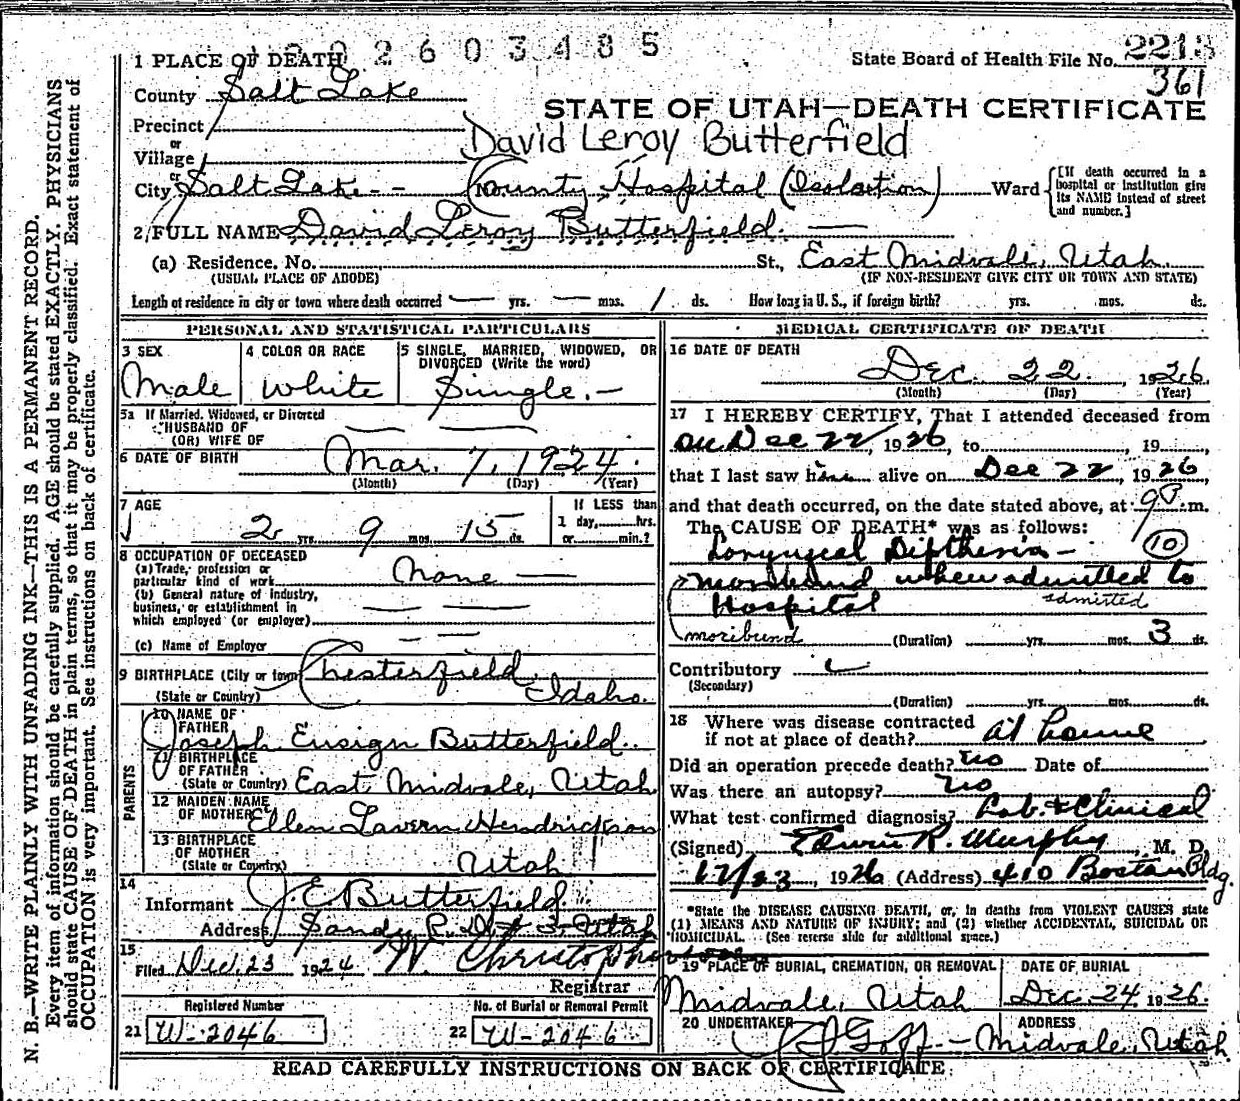 1 PLACE OF DEATH
2 6 0 3 4 8 5
State Board of Health File No. 2213
361
County Salt Lake
STATE OF UTAH—DEATH CERTIFICATE
Precinct
or
Village
David Leroy Butterfield
or
City Salt Lake - - (No. County Hospital (Isolaction) Ward
[If death occurred in a hospital or institution give its NAME instead of street and number.]
2 FULL NAME David Leroy Butterfield. —
(a) Residence. No. St., East Midvale, Utah.
(USUAL PLACE OF ABODE) (IF NON-RESIDENT GIVE CITY OR TOWN AND STATE)
Length of residence in city or town where death occurred — yrs. — mos. 1 ds. How long in U. S., if foreign birth? yrs. mos. ds.
PERSONAL AND STATISTICAL PARTICULARS
3 SEX Male
4 COLOR OR RACE White
5 SINGLE, MARRIED, WIDOWED, OR DIVORCED (Write the word) Single. -
5a If Married, Widowed, or Divorced
HUSBAND OF
(OR) WIFE OF — —
6 DATE OF BIRTH Mar. 7, 1924.
(Month) (Day) (Year)
7 AGE 2 yrs. 9 mos. 15 ds.
If LESS than
1 day, hrs.
or min.?
8 OCCUPATION OF DECEASED
(a) Trade, profession or
particular kind of work None —
(b) General nature of industry,
business, or establishment in
which employed (or employer) — —
(c) Name of Employer — —
9 BIRTHPLACE (City or town) Chesterfield,
(State or Country) Idaho.
PARENTS
10 NAME OF
FATHER Joseph Ensign Butterfield.
11 BIRTHPLACE
OF FATHER
(State or Country) East Midvale, Utah
12 MAIDEN NAME
OF MOTHER Ellen Lavern Hendrickson
13 BIRTHPLACE
OF MOTHER
(State or Country) Utah
14
Informant J. E. Butterfield.
Address Sandy R. D. # 3. Utah
15
Filed Dec. 23 1924 W. Christopherson
Registrar
Registered Number
21 W-2046
No. of Burial or Removal Permit
22 W-2046
MEDICAL CERTIFICATE OF DEATH
16 DATE OF DEATH
Dec. 22, 1926.
(Month) (Day) (Year)
17 I HEREBY CERTIFY, That I attended deceased from
on Dec 22, 1926, to , 19
that I last saw him alive on Dec 22, 1926
and that death occurred, on the date stated above, at 9 P.m.
The CAUSE OF DEATH* was as follows:
Laryngeal Diptheria - (10)
moribund when admitted to
Hospital admitted
moribund (Duration) yrs. mos. 3 ds.
Contributory
(Secondary)
(Duration) yrs. mos. ds.
18 Where was disease contracted
if not at place of death? at home
Did an operation precede death? no Date of
Was there an autopsy? no
What test confirmed diagnosis? Lab. & Clinical
(Signed) Edwin R. Murphy, M. D.
12/23, 1926 (Address) 410 Boston Bldg.
*State the DISEASE CAUSING DEATH, or, in deaths from VIOLENT CAUSES state
(1) MEANS AND NATURE OF INJURY; and (2) whether ACCIDENTAL, SUICIDAL OR
HOMICIDAL. (See reverse side for additional space.)
19 PLACE OF BURIAL, CREMATION, OR REMOVAL
Midvale, Utah
DATE OF BURIAL
Dec. 24 1926.
20 UNDERTAKER Goff. —
ADDRESS Midvale, Utah
READ CAREFULLY INSTRUCTIONS ON BACK OF CERTIFICATE.
N. B.—WRITE PLAINLY WITH UNFADING INK—THIS IS A PERMANENT RECORD.
Every item of information should be carefully supplied. AGE should be stated EXACTLY. PHYSICIANS
should state CAUSE OF DEATH in plain terms, so that it may be properly classified. Exact statement of
OCCUPATION is very important. See instructions on back of certificate.